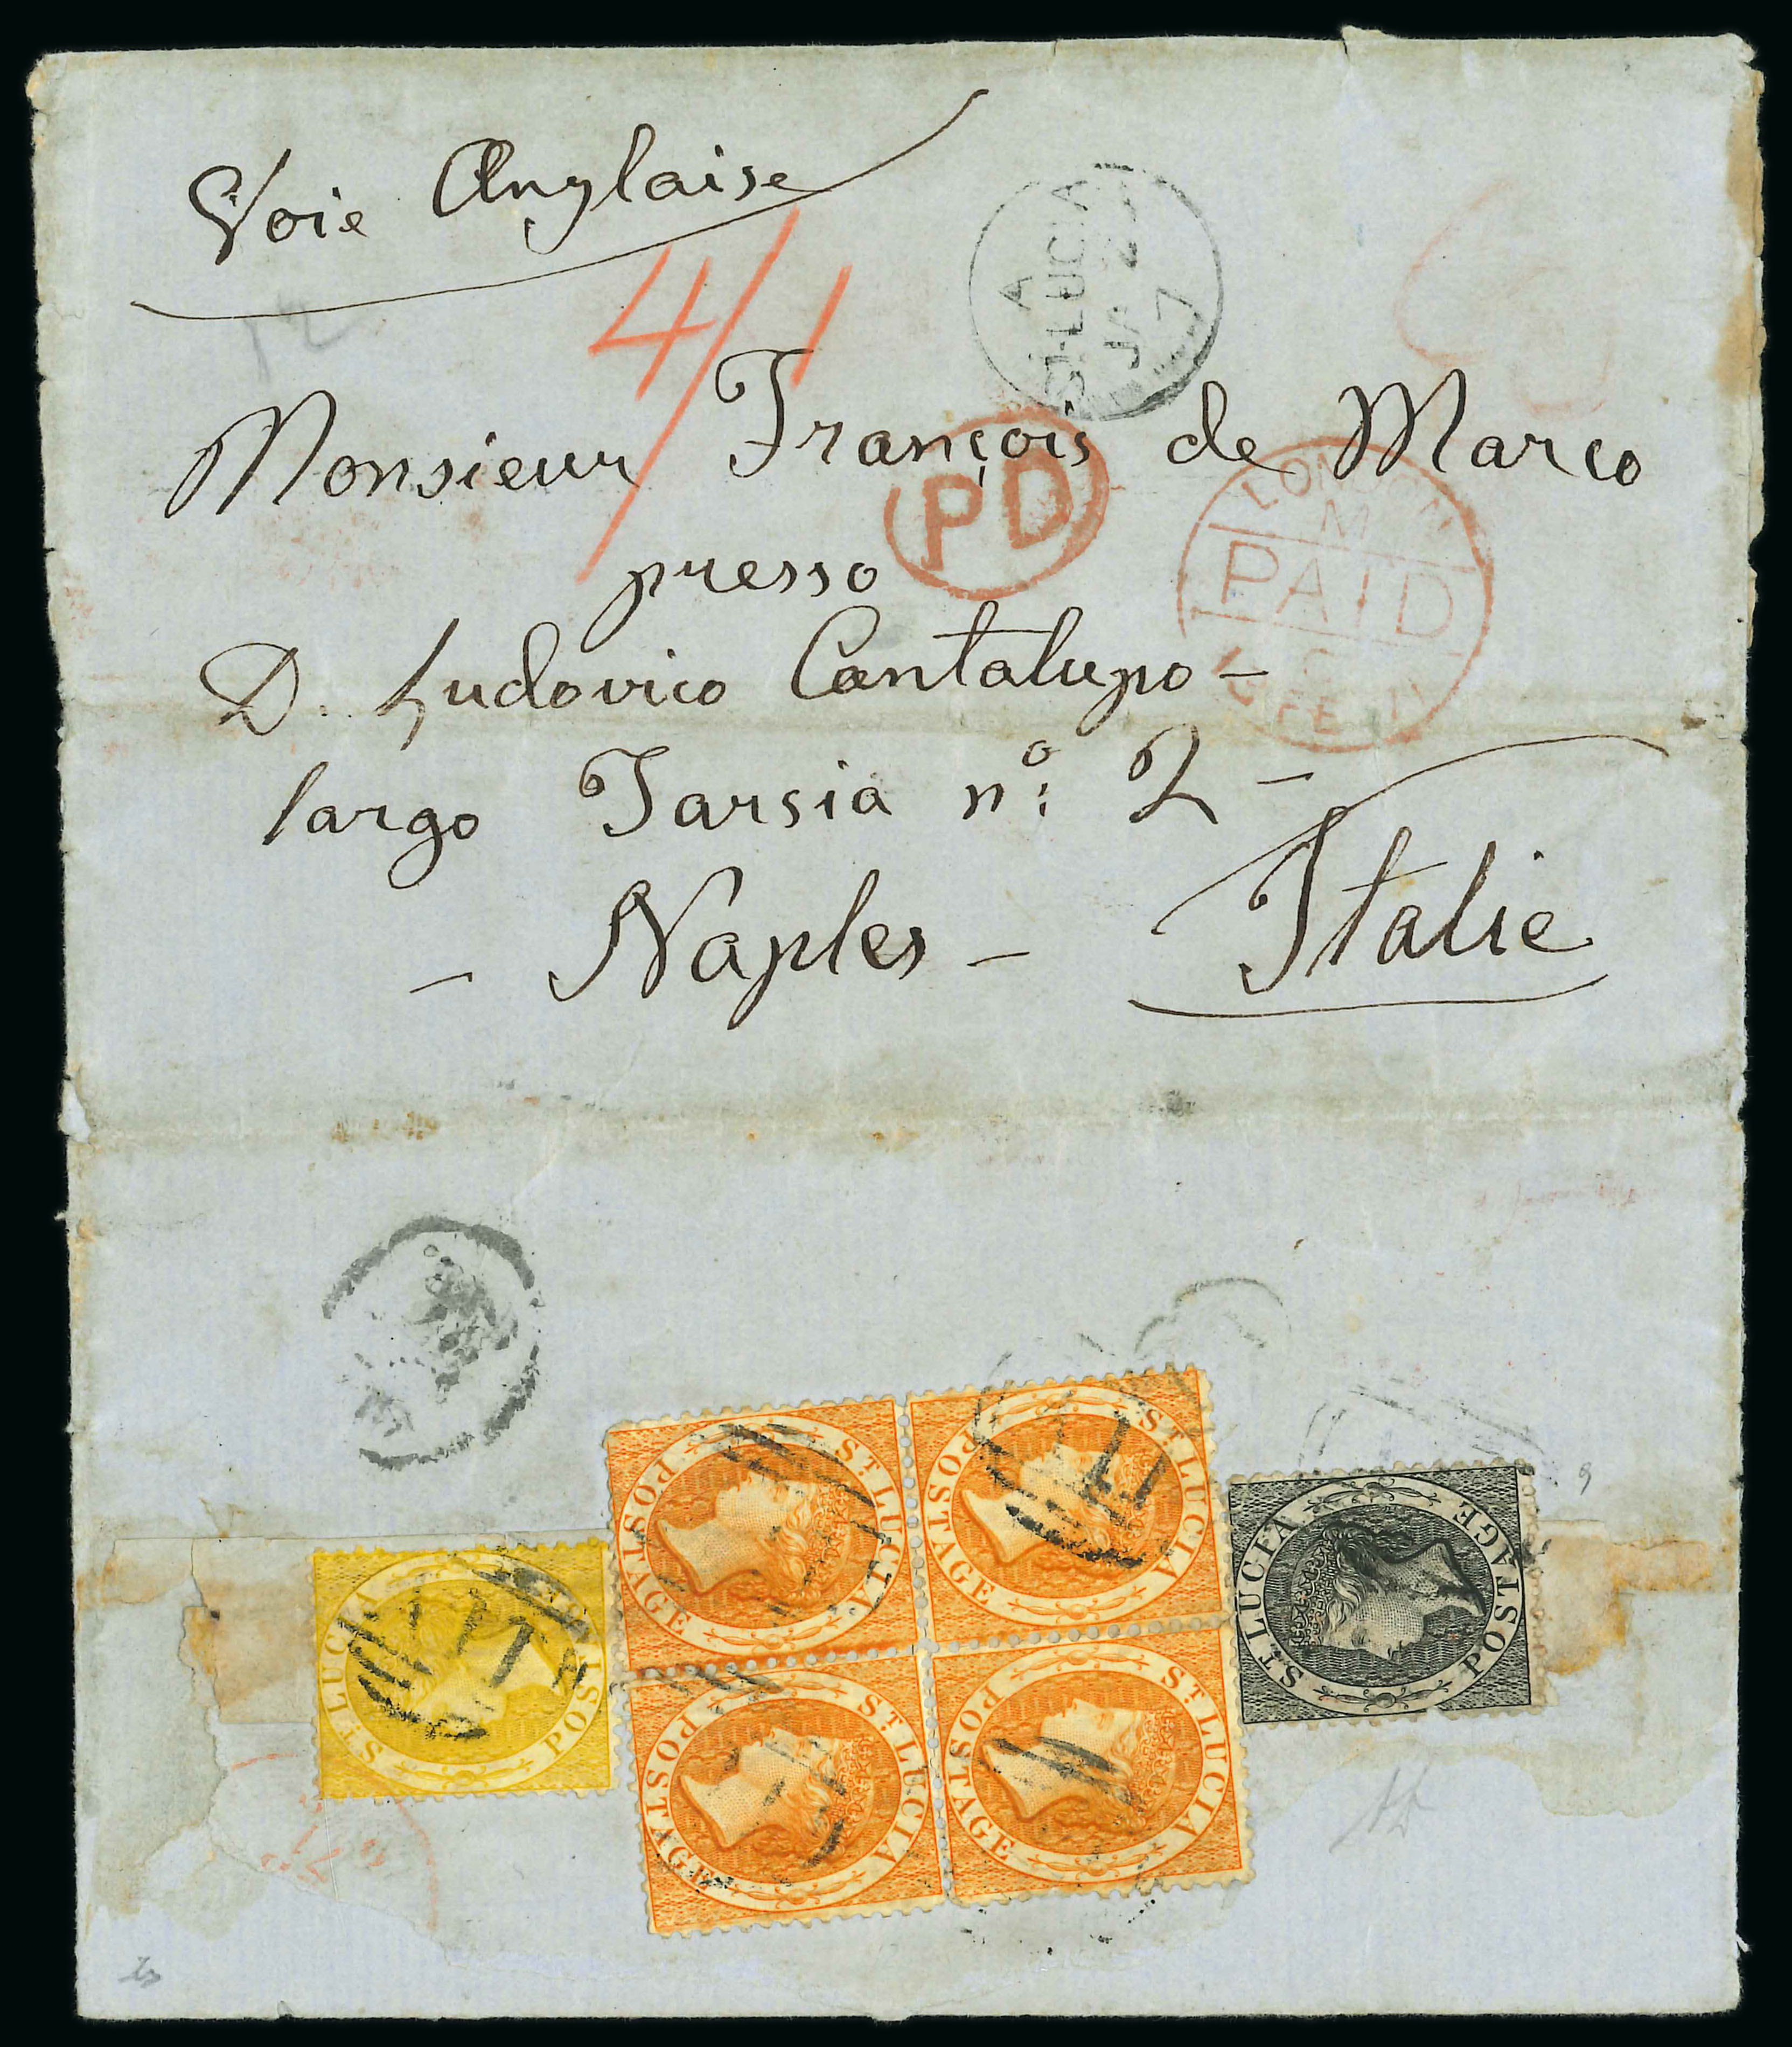 Voie Anglaise
4/1
A
ST. LUCIA
JA 27
7
Monsieur François de Marco
PD
LONDON
M
PAID
FE
presso
D. Ludovico Cantalupo -
largo Tarsia nº: 2 -
- Naples - Italie
ST LUCIA POSTAGE
ST LUCIA POSTAGE
ST LUCIA POSTAGE
ST LUCIA POSTAGE
ST LUCIA POSTAGE
ST LUCIA POSTAGE